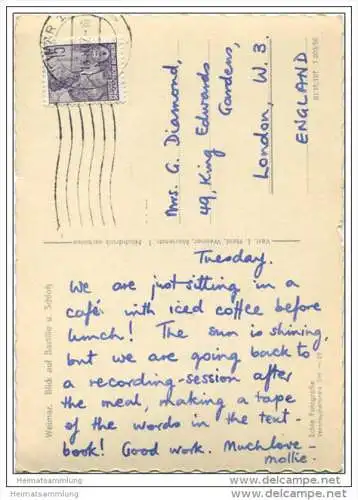 Mrs. G. Diamond,
49, King Edwards
Gardens,
London, W. 3.
ENGLAND
Tuesday.
We are just sitting in a
café with iced coffee before
lunch! The sun is shining,
but we are going back to
a recording-session after
the meal, making a tape
of the words in the text
book! Good work. Much love
mollie.
Weimar, Blick auf Bastille u. Schloß
Echte Fotografie
Heimatsammlung
Heimatsammlung
delcampe.net